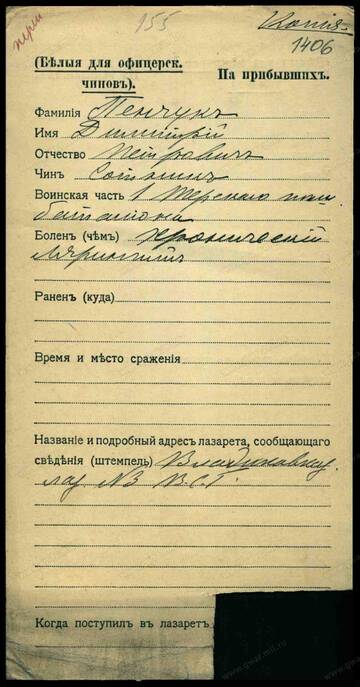 155
Копія
1406
(Бѣлыя для офицерск.
чиновъ).
На прибывшихъ.
Фамилія Пенчукъ
Имя Димитрій
Отчество Петровичъ
Чинъ Сотникъ
Воинская часть 1 Терскаго плас.
батальона
Боленъ (чѣмъ) хроническій
Ларингитъ
Раненъ (куда)
Время и мѣсто сраженія
Названіе и подробный адресъ лазарета, сообщающаго
свѣдѣнія (штемпель) Владикавказ.
лаз №3 В.С.Г.
Когда поступилъ въ лазаретъ
www.gwar.mil.ru